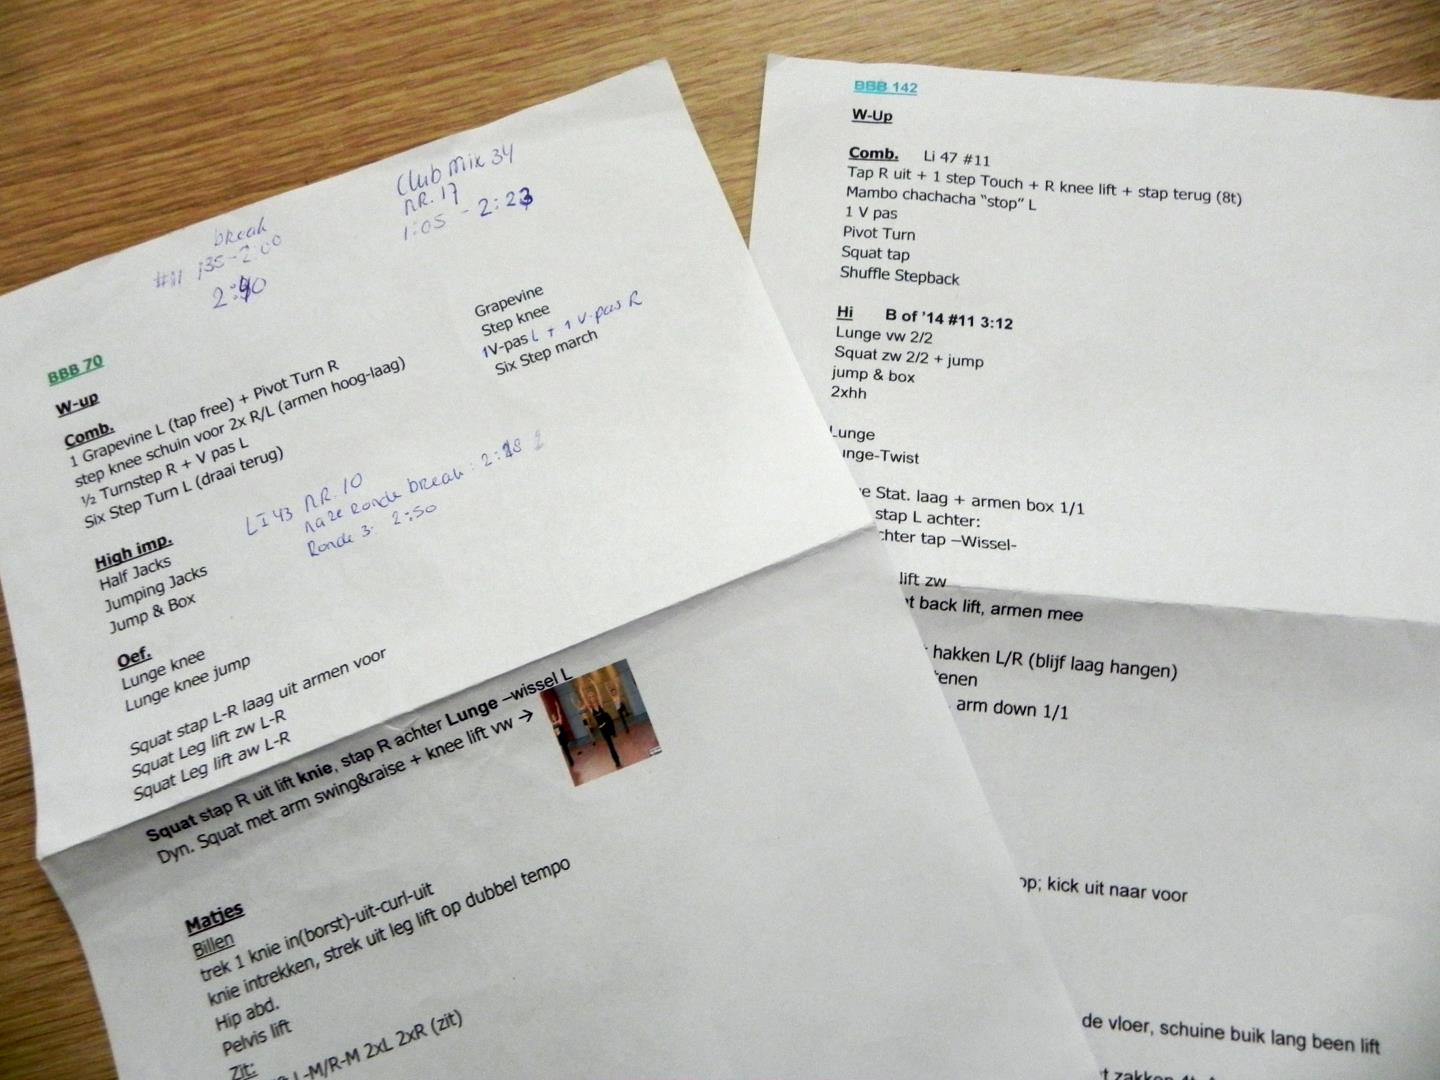 break
#11 135-2:00
2:40
Club Mix 34
nR. 17
1:05 - 2:23
BBB 70
W-up
Comb.
1 Grapevine L (tap free) + Pivot Turn R
step knee schuin voor 2x R/L (armen hoog-laag)
½ Turnstep R + V pas L
Six Step Turn L (draai terug)
Grapevine
Step knee
1V-pas L + 1 V-pas R
Six Step march
LI 43 nR. 10
na 2e Ronde break: 2:28
Ronde 3: 2:50
High imp.
Half Jacks
Jumping Jacks
Jump & Box
Oef.
Lunge knee
Lunge knee jump
Squat stap L-R laag uit armen voor
Squat Leg lift zw L-R
Squat Leg lift aw L-R
Squat stap R uit lift knie, stap R achter Lunge –wissel L
Dyn. Squat met arm swing&raise + knee lift vw →
Matjes
Billen
trek 1 knie in(borst)-uit-curl-uit
knie intrekken, strek uit leg lift op dubbel tempo
Hip abd.
Pelvis lift
Zit:
L-M/R-M 2xL 2xR (zit)
BBB 142
W-Up
Comb. Li 47 #11
Tap R uit + 1 step Touch + R knee lift + stap terug (8t)
Mambo chachacha “stop” L
1 V pas
Pivot Turn
Squat tap
Shuffle Stepback
Hi B of ’14 #11 3:12
Lunge vw 2/2
Squat zw 2/2 + jump
jump & box
2xhh
Lunge
unge-Twist
e Stat. laag + armen box 1/1
stap L achter:
chter tap –Wissel-
lift zw
t back lift, armen mee
hakken L/R (blijf laag hangen)
tenen
arm down 1/1
op; kick uit naar voor
de vloer, schuine buik lang been lift
t zakken